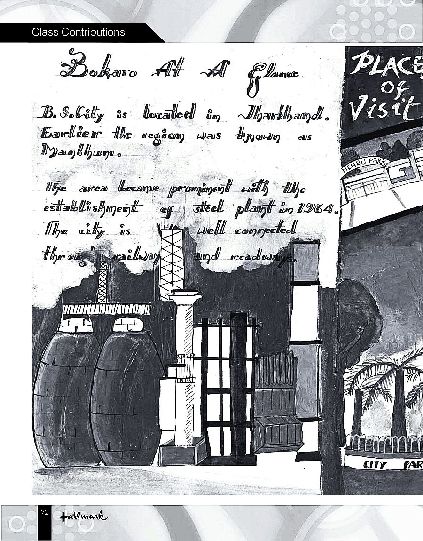 Class Contributions
Bokaro At A Glance
B.S.City is located in Jharkhand.
Earlier the region was known as
The area became prominent with the
establishment of steel plant in 1964.
The city is well connected
through railway and roadways.
PLACE
of
Visit
CITY PAR
Hallmark